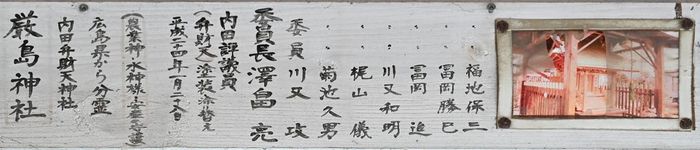 厳島神社
内田弁財天神社
広島県から分霊
(農業神・水神様・
平成二十四年一月
(弁財天)塗装塗替え
内田評議員
委員長 澤畠 亮
委員 川又 攻
〃 菊池久男
〃 梶山 儀
〃 川又和明
〃 冨岡 進
〃 冨岡勝巳
〃 福地保二